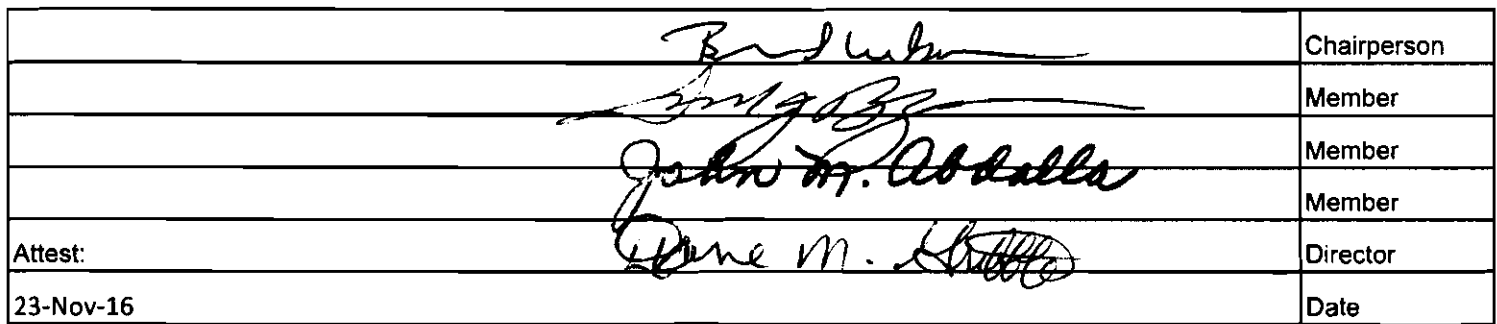 Chairperson
Member
John M. Abdalla Member
Member
Attest: M. Director
23-Nov-16 Date